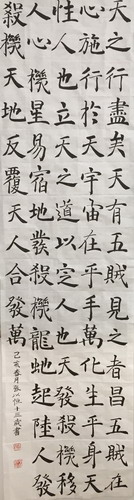 天之行盡矣天有五賊見之者昌五賊在
心施行於天宇宙在乎手萬化生乎身天
性人也立天之道以定人也天發殺機移
人心機星易宿地發殺機龍虵起陸人發
殺機天地反覆天人合發萬
己亥春月張以恆十三歲書